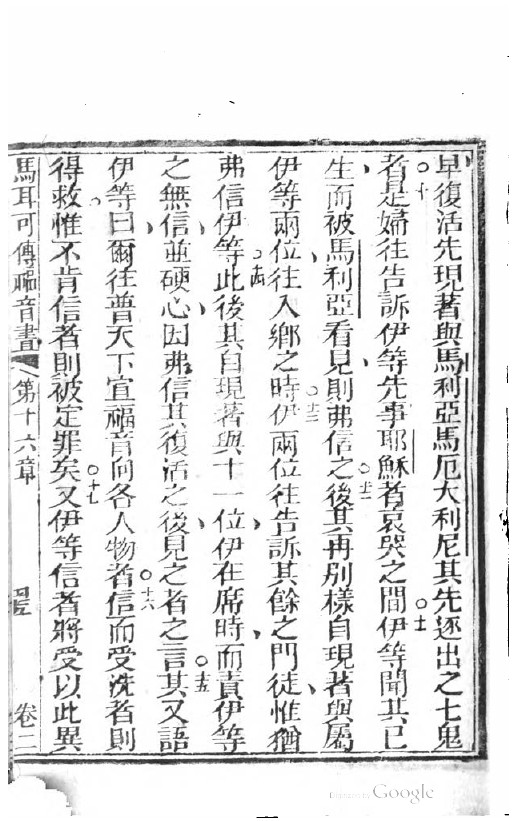 早復活先現著與馬利亞馬厄大利尼其先逐出之七鬼
者○十是婦往告訴伊等先事耶穌者哀哭之間○十一伊等聞其已
生而被馬利亞看見則弗信之○十二後其再別樣自現著與屬
伊等兩位往入鄉之時○十三伊兩位往告訴其餘之門徒惟猶
弗信伊等○十四此後其自現著與十一位伊在席時而責伊等
之無信並硬心因弗信其復活之後見之者之言○十五其又語
伊等曰爾往普天下宣福音向各人物者○十六信而受洗者則
得救惟不肯信者則被定罪矣○十七又伊等信者將受以此異
馬耳可傳福音書 第十六章 卷二
Digitized by Google